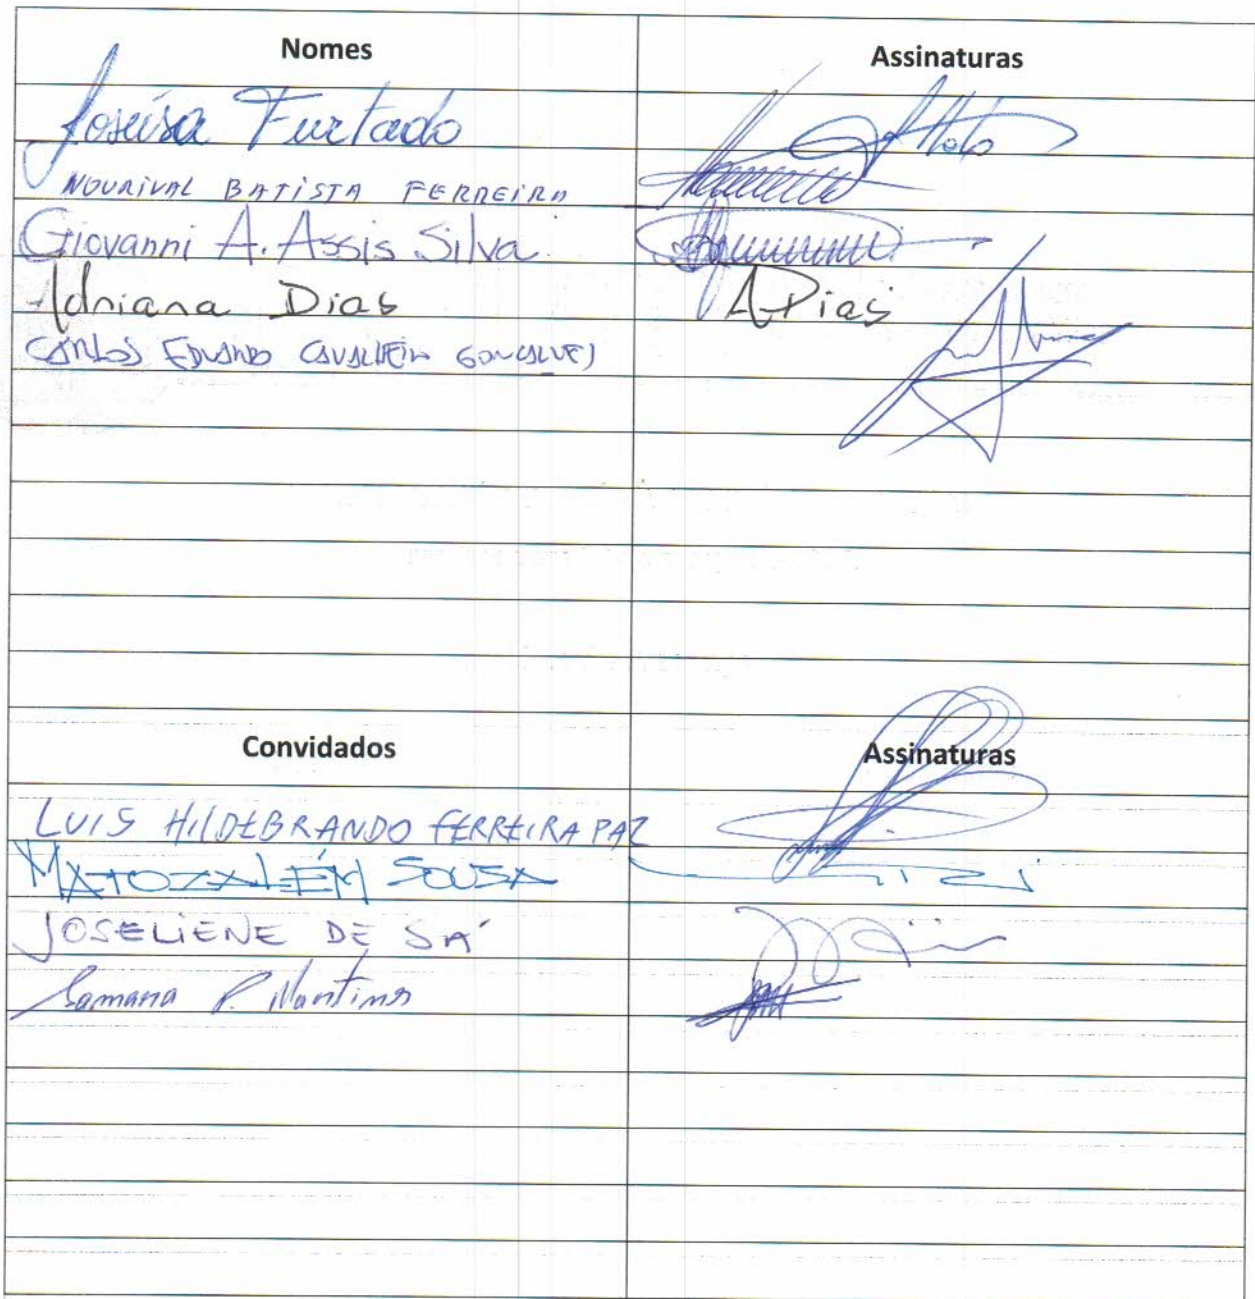 Nomes Assinaturas
Joseísa Furtado
NOURIVAL BATISTA FERREIRA
Giovanni A. Assis Silva
Adriana Dias A Dias
CARLOS EDUARDO CAVALHEIRO GONCALVES
Convidados Assinaturas
LUIS HILDEBRANDO FERREIRA PAZ
MATOZALÉM SOUSA
JOSELIENE DE SÁ
Samara P. Martins